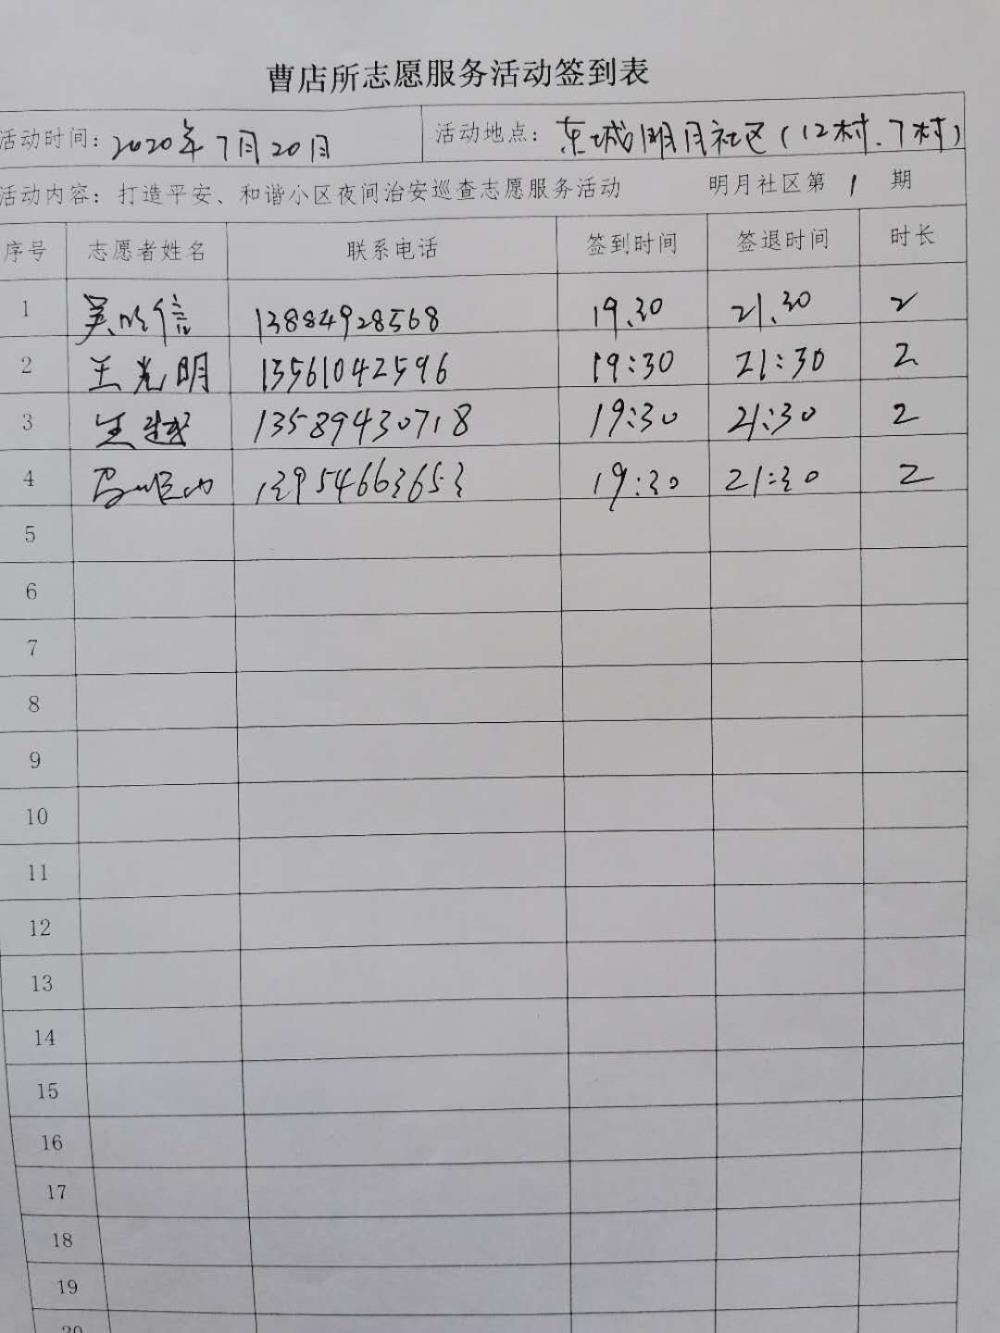 曹店所志愿服务活动签到表
活动时间: 2020年7月20日 活动地点: 东城明月社区(12村、7村)
活动内容: 打造平安、和谐小区夜间治安巡查志愿服务活动 明月社区第 1 期
序号 志愿者姓名 联系电话 签到时间 签退时间 时长
1 信 13884928568 19.30 21.30 2
2 王光明 13561042596 19:30 21:30 2
3 越 13589430718 19:30 21:30 2
4 13954663653 19:30 21:30 2
5
6
7
8
9
10
11
12
13
14
15
16
17
18
19
20